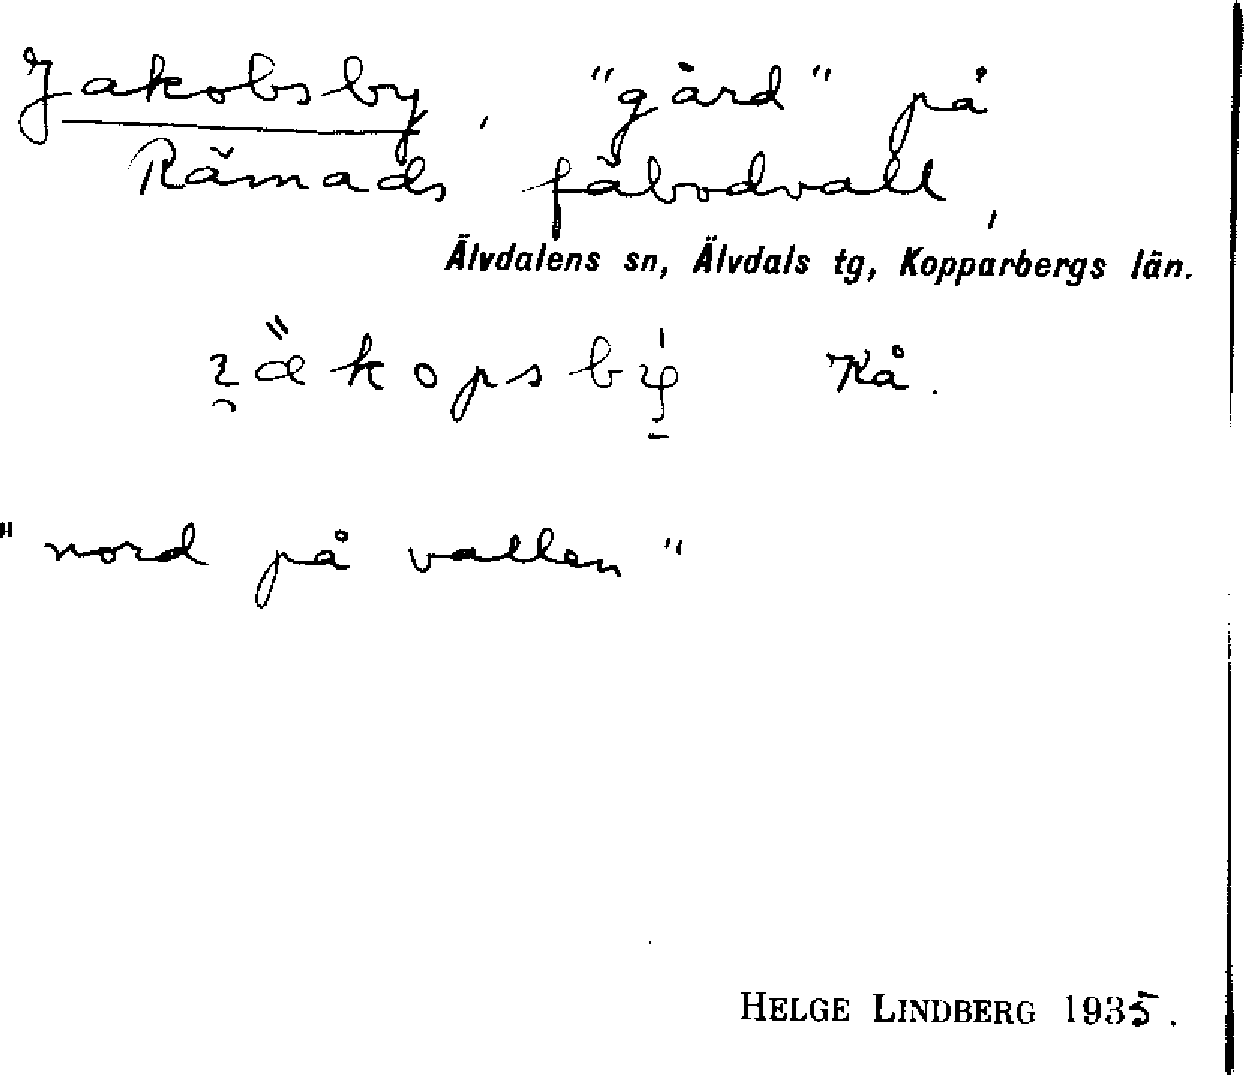 Jakobsby, "gård" på
Råmads fäbodvall,
Älvdalens sn, Älvdals tg, Kopparbergs län.
Kå.
"nord på vallen"
HELGE LINDBERG 1935.